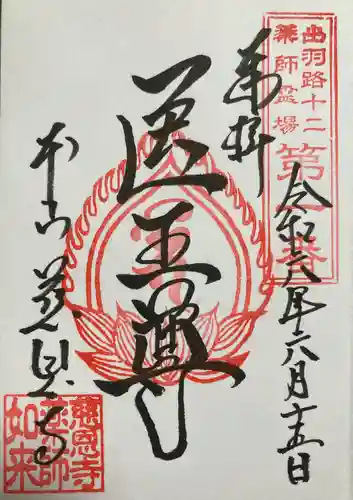 出羽路十二
薬師霊場第一番
奉拝
令和六年六月十五日
医王尊
本山慈恩寺
慈恩寺
薬師
如来